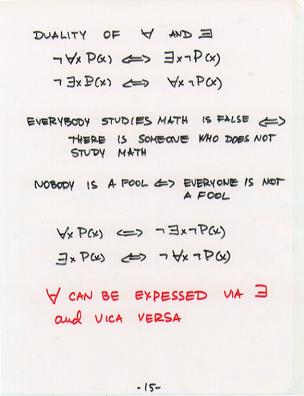 DUALITY OF ∀ AND ∃
¬∀x P(x) ⇔ ∃x¬P(x)
¬∃x P(x) ⇔ ∀x¬P(x)
EVERYBODY STUDIES MATH IS FALSE ⇔
THERE IS SOMEONE WHO DOES NOT
STUDY MATH
NOBODY IS A FOOL ⇔ EVERYONE IS NOT
A FOOL
∀x P(x) ⇔ ¬∃x¬P(x)
∃x P(x) ⇔ ¬∀x¬P(x)
∀ CAN BE EXPESSED VIA ∃
and VICA VERSA
-15-